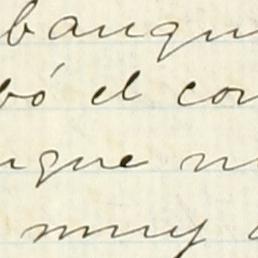 banqu
bó el con
nque n
muy